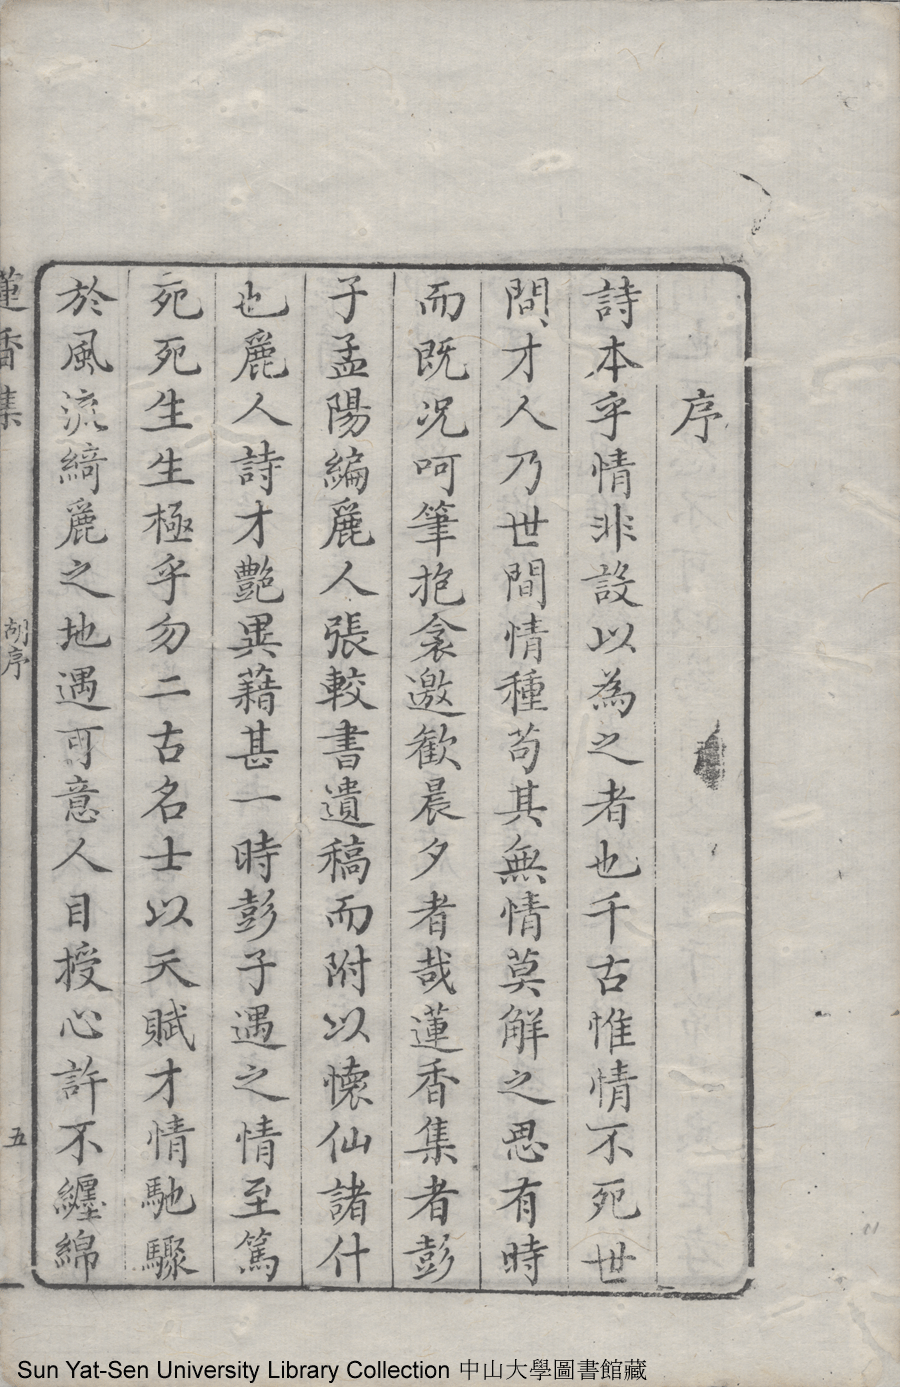 序
詩本乎情非設以為之者也千古惟情不死世
間才人乃世間情種苟其無情莫解之思有時
而既况呵筆抱衾邀歡晨夕者哉蓮香集者彭
子孟陽編麗人張較書遺稿而附以懷仙諸什
也麗人詩才艷異藉甚一時彭子遇之情至篤
死死生生極乎勿二古名士以天賦才情馳驟
於風流綺麗之地遇可意人目授心許不纏綿
蓮香集
胡序
五
Sun Yat-Sen University Library Collection 中山大學圖書館藏